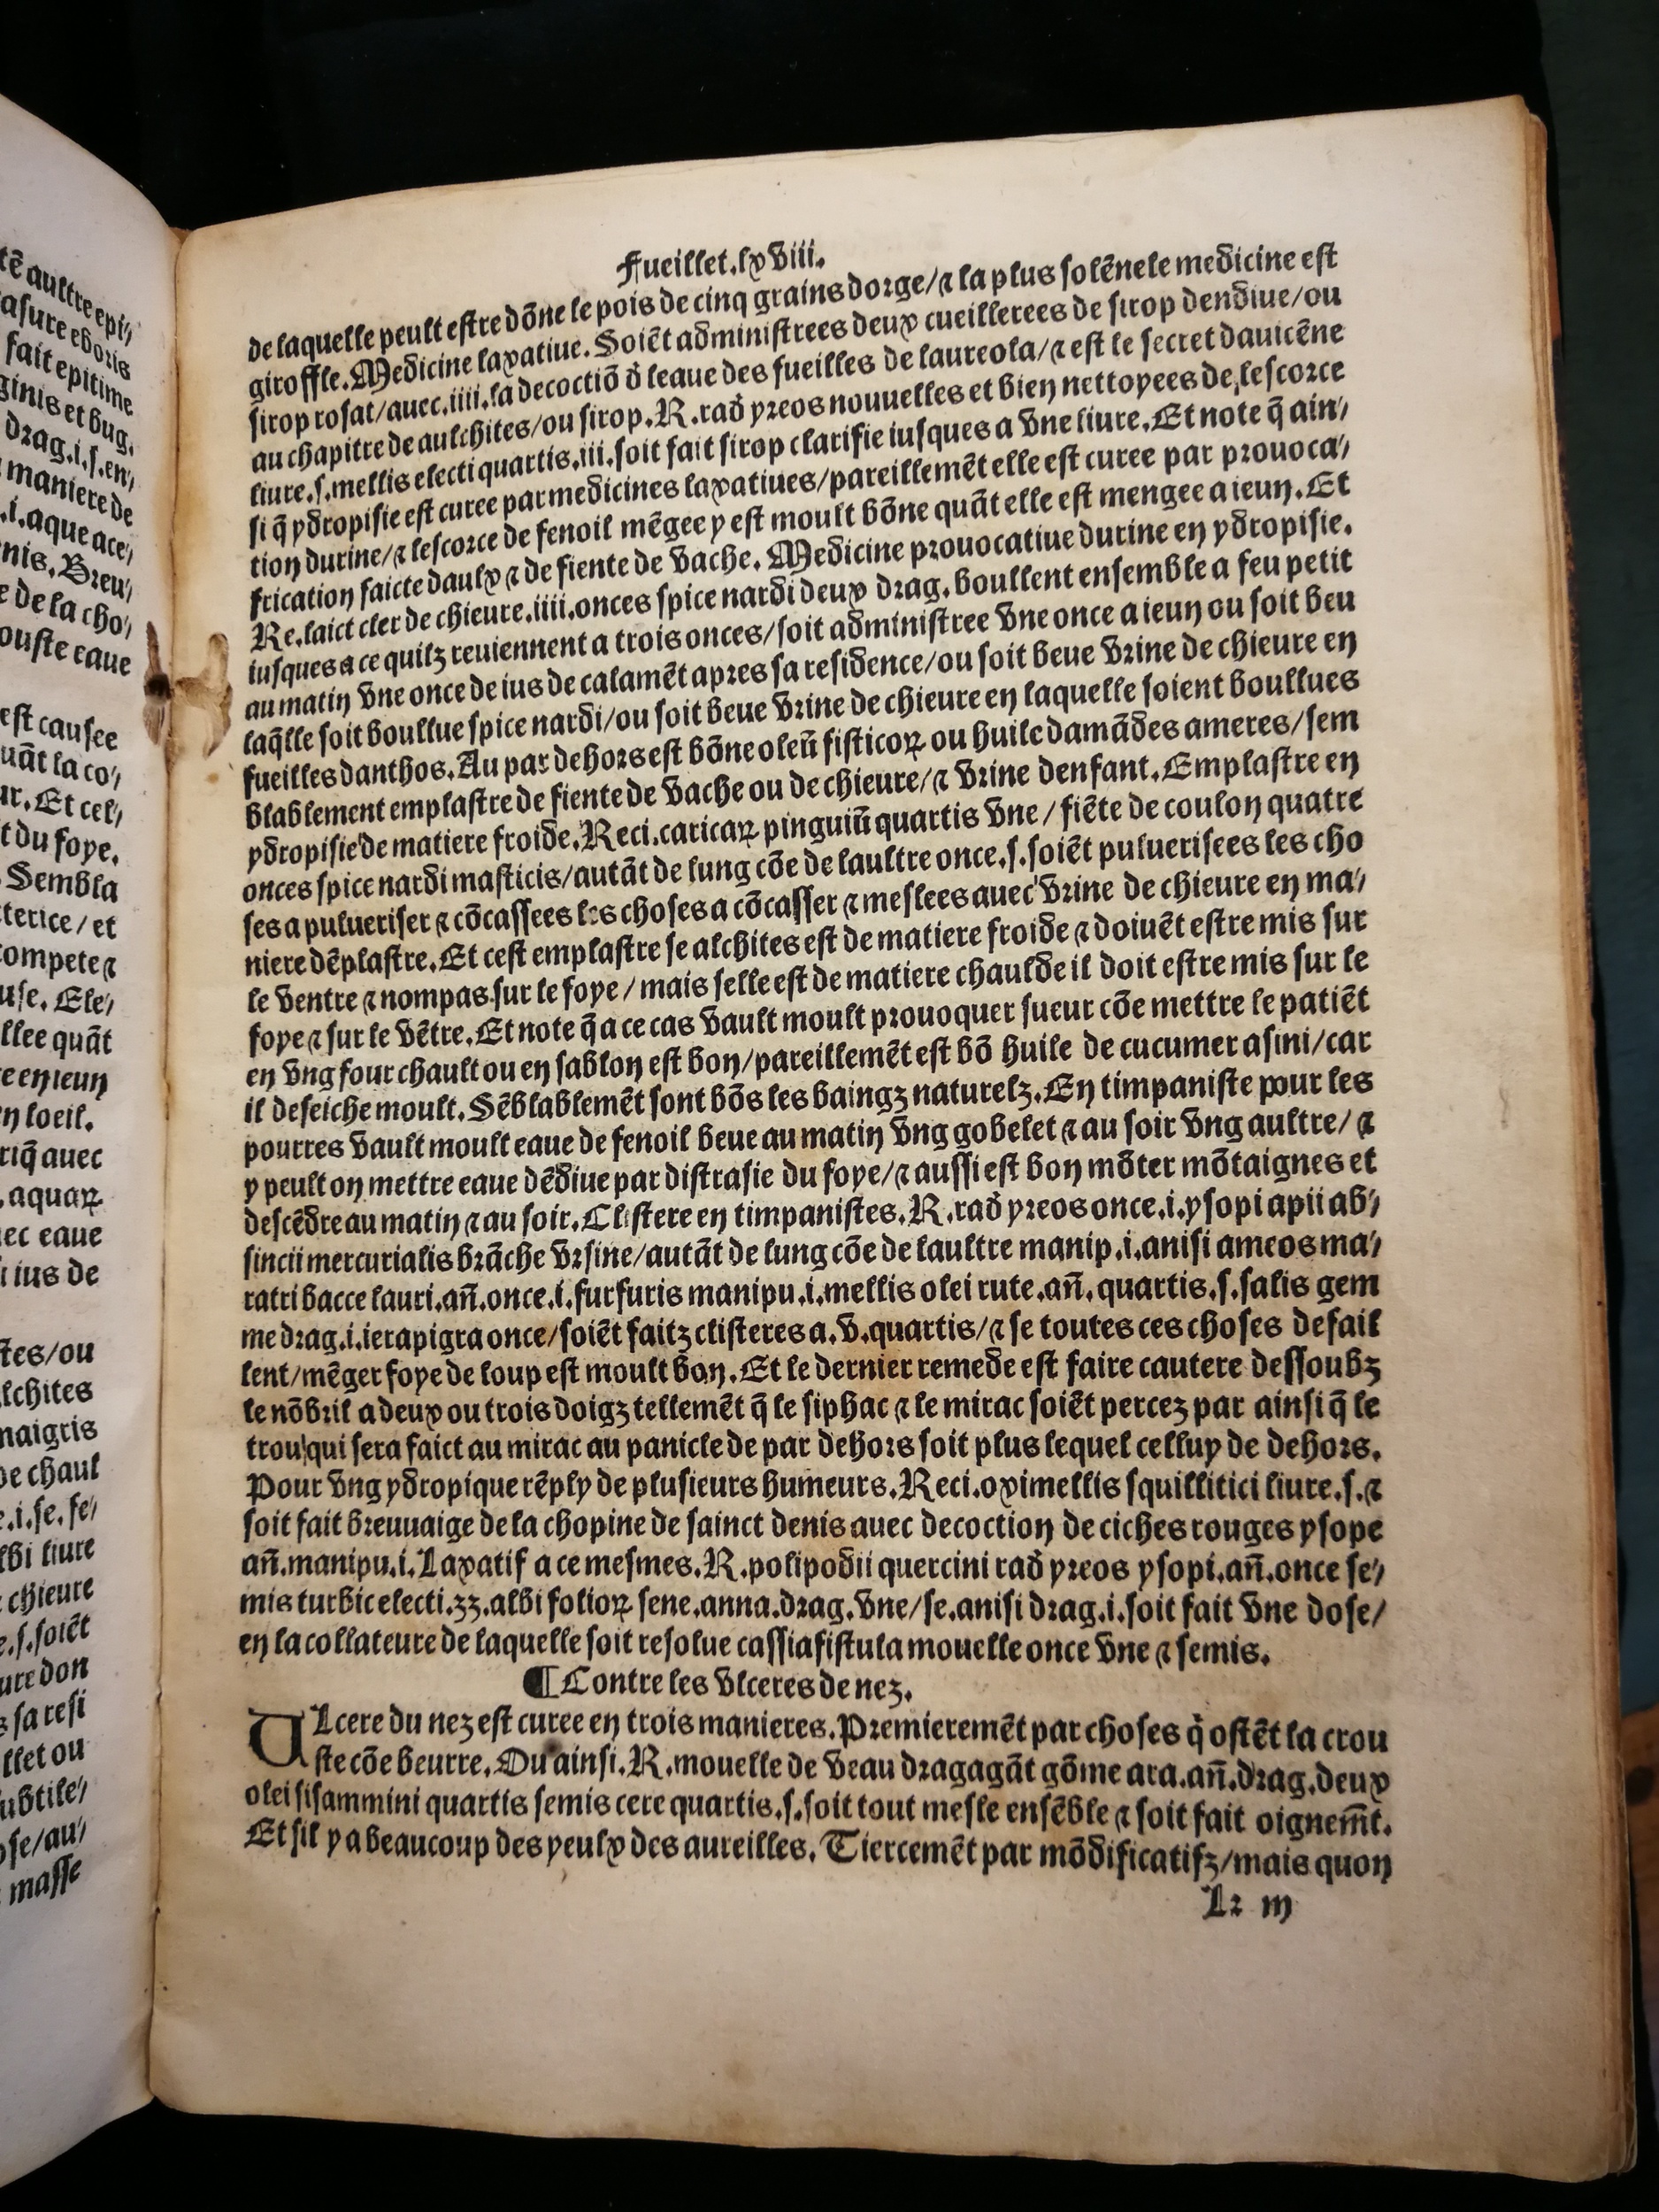 tẽ aultre epi/
asure eboris
fait epitime
ginis et bug.
drag.i.ſ.en/
maniere de
.i.aque ace/
nis. Breu/
e de la cho/
ouſte eaue
eſt cauſee
uãt la co/
ur. Et cel/
t du foye.
Sembla
terice / et
compete ⁊
uſe. Ele/
llee quãt
e en ieun
n loeil.
riq̃ auec
. aquaꝝ
ec eaue
i ius de
ſtes/ou
lchites
maigris
de chaul
e.i.ſe.ſe/
lbi liure
chieure
e.ſ.ſoiẽt
ure don
s ſa reſi
llet ou
ubtile/
oſe/au/
maſſe
Fueillet.lxviii.
de laquelle peult eſtre dõne le pois de cinq grains dorge/⁊ la plus ſolẽnele medicine eſt
giroffle. Medicine laxatiue. Soiẽt adminiſtrees deux cueillerees de ſirop dendiue/ou
ſirop roſat/auec.iiii.la decoctiõ d̕ leaue des fueilles de laureola/⁊ eſt le ſecret dauicẽne
au chapitre de aulchites/ou ſirop. R. rad̕ yreos nouuelles et bien nettoyees de leſcorce
liure.ſ.mellis electi quartis.iii.ſoit fait ſirop clarifie iuſques a vne liure. Et note q̃ ain/
ſi q̃ ydropiſie eſt curee par medicines laxatiues/pareillemẽt elle eſt curee par prouoca/
tion durine/⁊ leſcorce de fenoil mẽgee y eſt moult bõne quãt elle eſt mengee a ieun. Et
frication faicte daulx ⁊ de fiente de vache. Medicine prouocatiue durine en ydropiſie.
Re.laict cler de chieure.iiii.onces ſpice nardi deux drag. boullent enſemble a feu petit
iuſques a ce quilz reuiennent a trois onces/ſoit adminiſtree vne once a ieun ou ſoit beu
au matin vne once de ius de calamẽt apres ſa reſidence/ou ſoit beue vrine de chieure en
laq̃lle ſoit boullue ſpice nardi/ou ſoit beue vrine de chieure en laquelle ſoient boullues
fueilles danthos. Au par dehors eſt bõne oleũ fiſticoꝝ ou huile damãdes ameres/ſem
blablement emplaſtre de fiente de vache ou de chieure/⁊ vrine denfant. Emplaſtre en
ydropiſie de matiere froide. Reci.caricaꝝ pinguiũ quartis vne / fiẽte de coulon quatre
onces ſpice nardi maſticis/autãt de lung cõe de laultre once.ſ.ſoiẽt pulueriſees les cho
ſes a pulueriſer ⁊ cõcaſſees les choſes a cõcaſſer ⁊ meſlees auec vrine de chieure en ma/
niere dẽplaſtre. Et ceſt emplaſtre ſe alchites eſt de matiere froide ⁊ doiuẽt eſtre mis ſur
le ventre ⁊ nompas ſur le foye / mais ſelle eſt de matiere chaulde il doit eſtre mis ſur le
foye ⁊ ſur le vẽtre. Et note q̃ a ce cas vault moult prouoquer ſueur cõe mettre le patiẽt
en vng four chault ou en ſablon eſt bon/pareillemẽt eſt bõ huile de cucumer aſini/car
il deſeiche moult. Sẽblablemẽt ſont bõs les baingz naturelz. En timpaniſte pour les
pourres vault moult eaue de fenoil beue au matin vng gobelet ⁊ au ſoir vng aultre/ ⁊
y peult on mettre eaue dẽdiue par diſtraſie du foye/⁊ auſſi eſt bon mõter mõtaignes et
deſcẽdre au matin ⁊ au ſoir. Cliſtere en timpaniſtes. R. rad̕ yreos once.i.yſopi apii ab/
ſincii mercurialis brãche vrſine/autãt de lung cõe de laultre manip.i.aniſi ameos ma/
ratri bacce lauri.añ.once.i.furfuris manipu.i.mellis olei rute.añ. quartis.ſ.ſalis gem
me drag.i.ierapigra once/ſoiẽt faitz cliſteres a.v.quartis/⁊ ſe toutes ces choſes defail
lent/mẽger foye de loup eſt moult bon. Et le dernier remede eſt faire cautere deſſoubz
le nõbril a deux ou trois doigz tellemẽt q̃ le ſiphac ⁊ le mirac ſoiẽt percez par ainſi q̃ le
trou qui ſera faict au mirac au panicle de par dehors ſoit plus lequel celluy de dehors.
Pour vng ydropique rẽply de pluſieurs humeurs. Reci.oximellis ſquillitici liure.ſ.⁊
ſoit fait breuuaige de la chopine de ſainct denis auec decoction de ciches rouges yſope
añ.manipu.i. Laxatif a ce meſmes. R. polipodii quercini rad̕ yreos yſopi.añ.once ſe/
mis turbic electi.ʒʒ.albi folioꝝ ſene.anna.drag.vne/ſe.aniſi drag.i.ſoit fait vne doſe/
en la collateure de laquelle ſoit reſolue caſſiafiſtula mouelle once vne ⁊ ſemis.
¶Contre les vlceres de nez.
Vlcere du nez eſt curee en trois manieres. Premieremẽt par choſes q̇ oſtẽt la crou
ſte cõe beurre. Ou ainſi. R. mouelle de veau dragagãt gõme ara.añ.drag.deux
olei ſiſammini quartis ſemis cere quartis.ſ.ſoit tout meſle enſẽble ⁊ ſoit fait oignem̃t.
Et ſil y a beaucoup des yeulx des aureilles. Tiercemẽt par mõdificatifz/mais quon
Lr iii